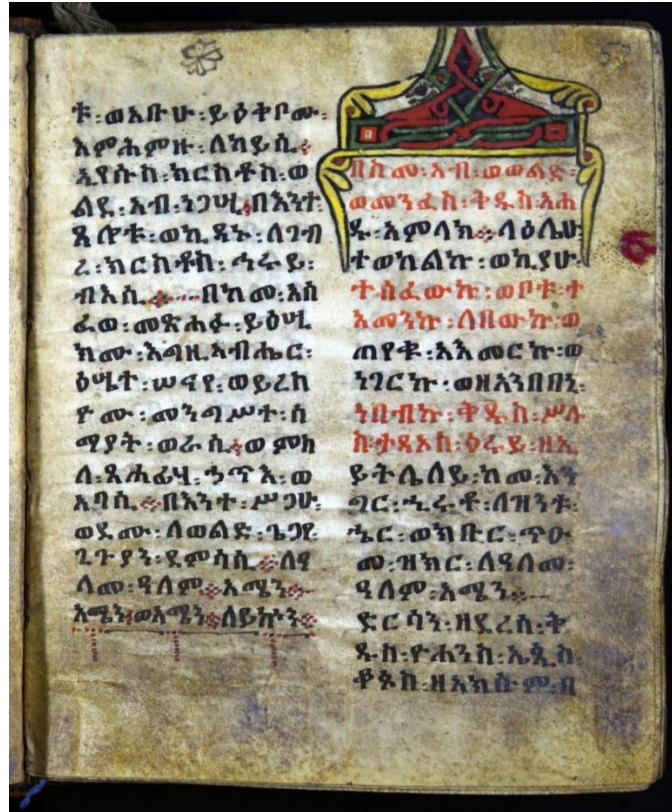 ቱ፡ወአቡሁ፡ይዕቀቦሙ፡
እምሕምዙ፡ለከይሲ።
ኢየሱስ፡ክርስቶስ፡ወ
ልደ፡አብ፡ነጋሢ።በእንተ
ጸሎቱ፡ወኪዳኑ፡ለገብ
ረ፡ክርስቶስ፡ኅሩይ፡
ብእሲ።በከመ፡አስ
ፈወ፡መጽሐፉ፡ይዕሢ
ክሙ፡እግዚአብሔር፡
ዕሢተ፡ሠናየ፡ወይረስ
ዮሙ፡መንግሥተ፡ሰ
ማያት፡ወራሲ።ወምስ
ለ፡ጸሐፊሃ፡ኃጥእ፡ወ
አባሲ።በእንተ፡ሥጋሁ፡
ወደሙ፡ለወልድ፡ጌጋየ፡
ጊጉያን፡ደምሳሲ።ለዓ
ለመ፡ዓለም።አሜን።
አሜን፡ወአሜን።ለይኩን።
በስመ፡አብ፡ወወልድ፡
ወመንፈስ፡ቅዱስ፡አሐ
ዱ፡አምላክ።ላዕሌሁ
ተወከልኩ፡ወኪያሁ፡
ተሰፈውኩ፡ወቦቱ፡ተ
አመንኩ፡ለበውኩ፡ወ
ጠየቁ፡አእመርኩ፡ወ
ነገርኩ፡ወዘአንበበኒ፡
ነበብኩ፡ቅዱስ፡ሥሉ
ስ፡ዕሩይ፡ዘኢ
ይትሌለይ፡ከመ፡እን
ግር፡ኂሩቶ፡ለዝንቱ፡
ኄር፡ወክቡር፡ጥዑ
መ፡ዝክር፡ለዓለመ፡
ዓለም፡አሜን።
ድርሳን፡ዘደረሰ፡ቅ
ዱስ፡ዮሐንስ፡ኤጲስ
ቆጶስ፡ዘአክሱም፡በ